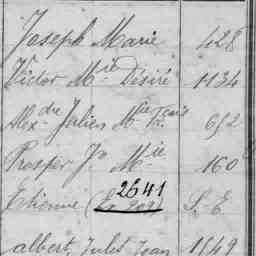 Joseph Marie 428
Victor Mie Désiré 1134
Alexdre Julien Mie 692
Prosper Jh Mie 160
2641
Etienne S. E.
albert, Jules Jean 1549